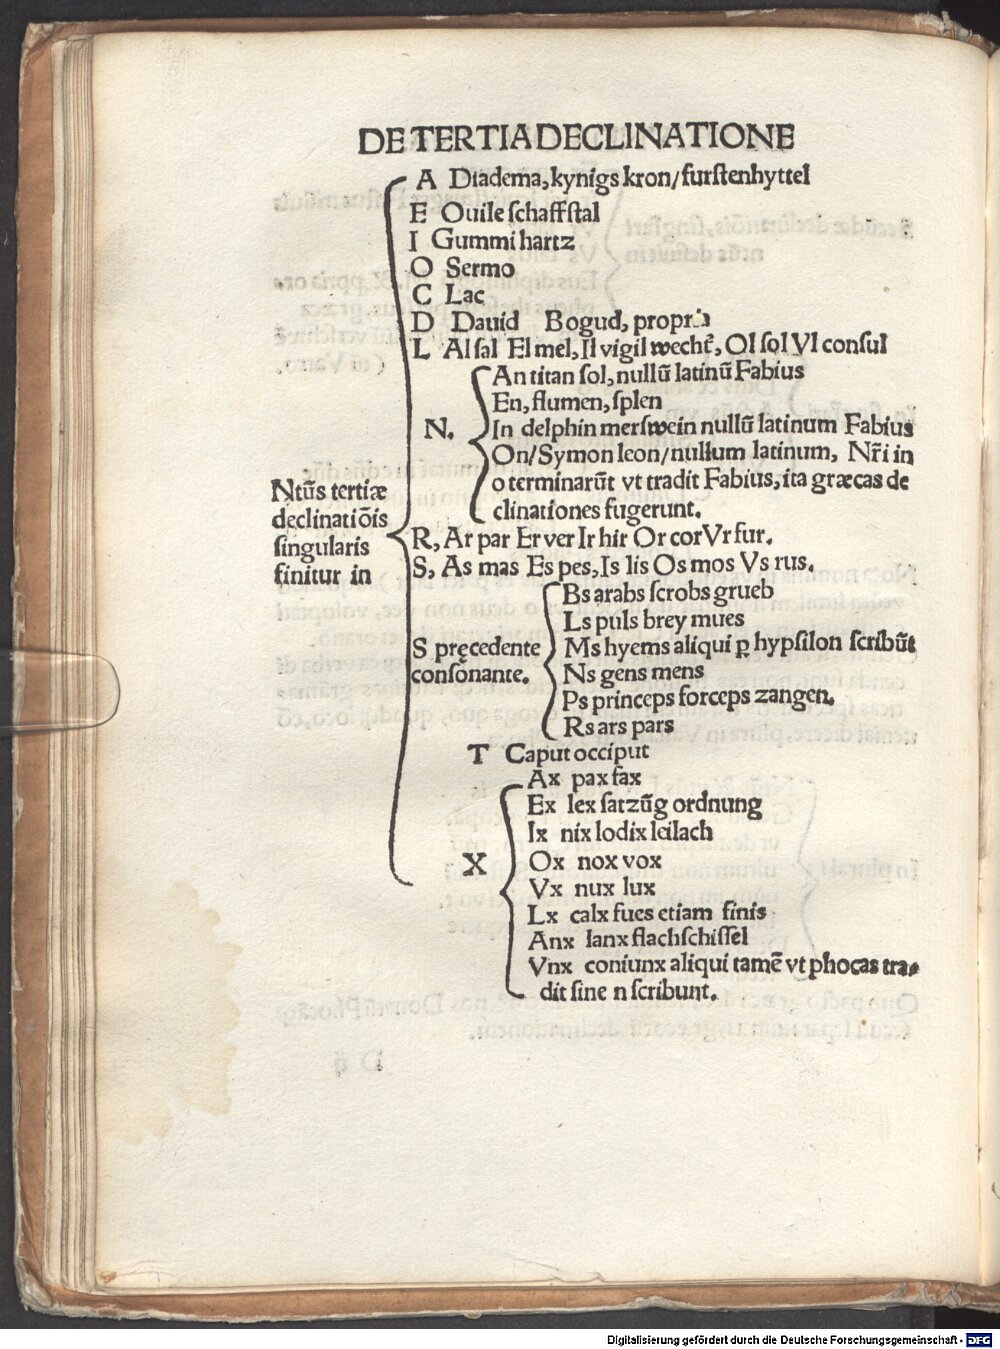 DE TERTIA DECLINATIONE
A Diadema, kynigs kron/ furſtenhyttel
E Ouile ſchaffſtal
I Gummi hartz
O Sermo
C Lac
D Dauid Bogud, propria
L Al ſal El mel, Il vigil wecht̄, Ol ſol Vl conſul
N.
An titan ſol, nullū latinū Fabius
En, flumen, ſplen
In delphin merſwein nullū latinum Fabius
On/ Symon leon/ nullum latinum, Nr̄i in
o terminarūt vt tradit Fabius, ita græcas de
clinationes fugerunt.
Ntūs tertiæ
declinatiōis
ſingularis
finitur in
R, Ar par Er ver Ir hir Or cor Vr fur.
S, As mas Es pes, Is lis Os mos Vs rus.
S pręcedente
conſonante.
Bs arabs ſcrobs grueb
Ls puls brey mues
Ms hyems aliqui ꝑ hypſilon ſcribūt
Ns gens mens
Ps princeps forceps zangen.
Rs ars pars
T Caput occiput
X
Ax pax fax
Ex lex ſatzūg ordnung
Ix nix lodix leilach
Ox nox vox
Vx nux lux
Lx calx fues etiam finis
Anx lanx flachſchiſſel
Vnx coniunx aliqui tamē vt phocas tra-
dit ſine n ſcribunt.
Digitalisierung gefördert durch die Deutsche Forschungsgemeinschaft - DFG